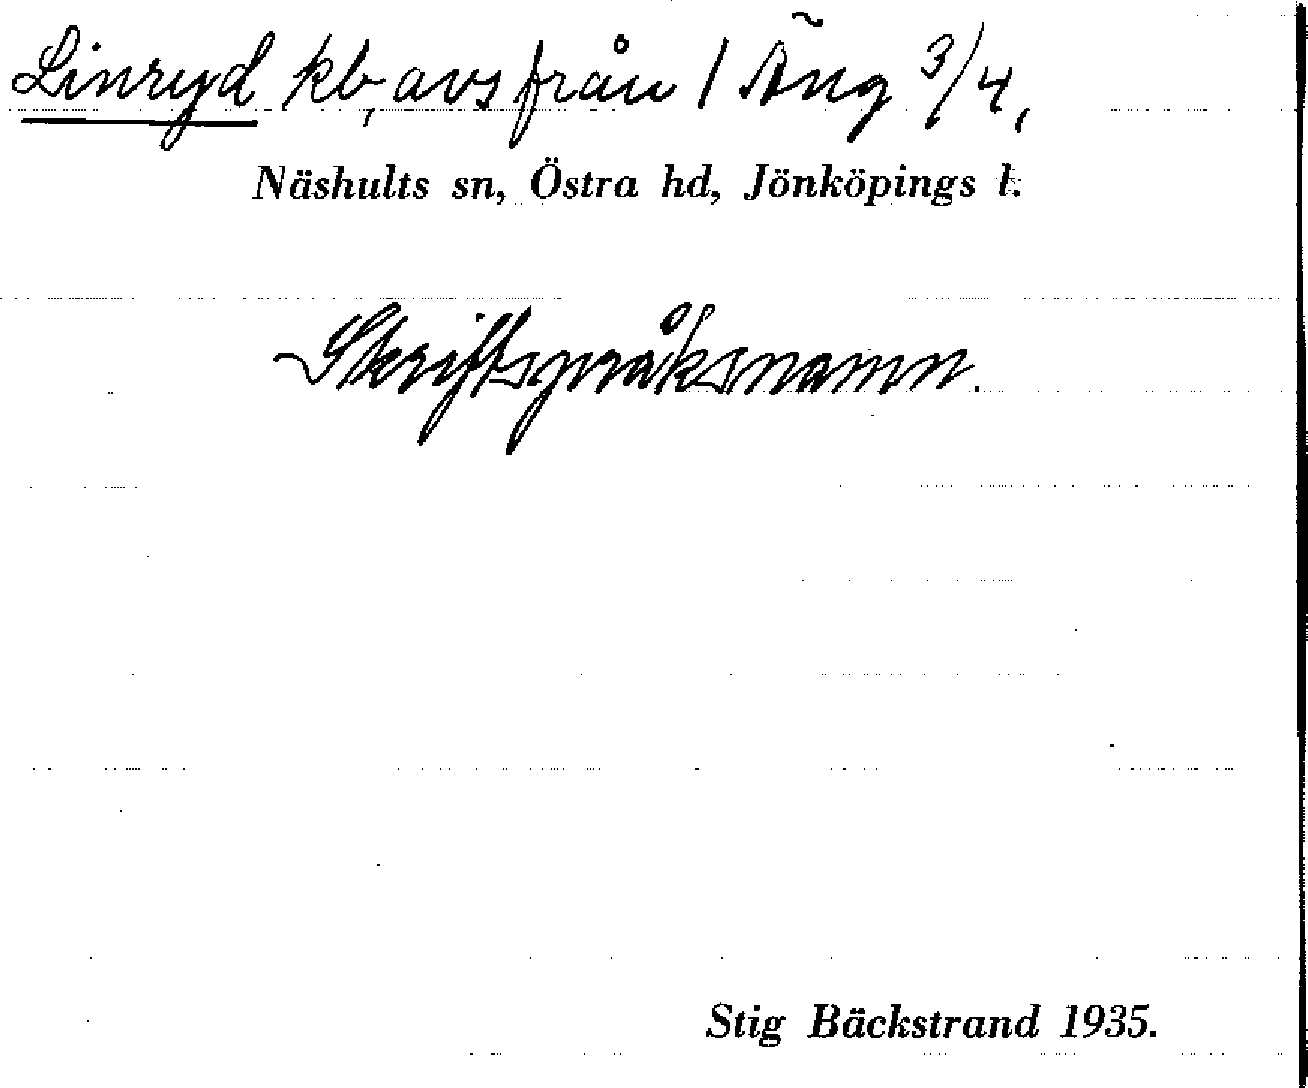 Linryd kb, avs från 1 Äng 3/4,
Näshults sn, Östra hd, Jönköpings l.
Skriftspråksnamn.
Stig Bäckstrand 1935.